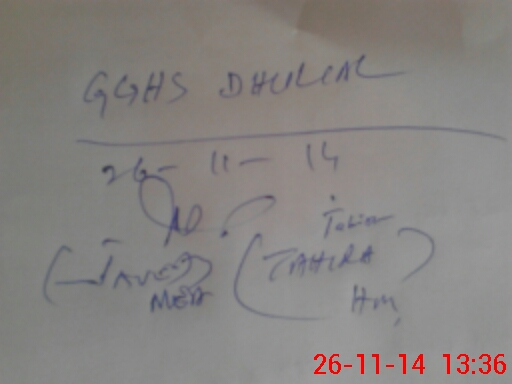 GGHS DHULIAL
26-11-14
Tahira
(JAVED) (TAHIRA)
MEA Hm
26-11-14 13:36